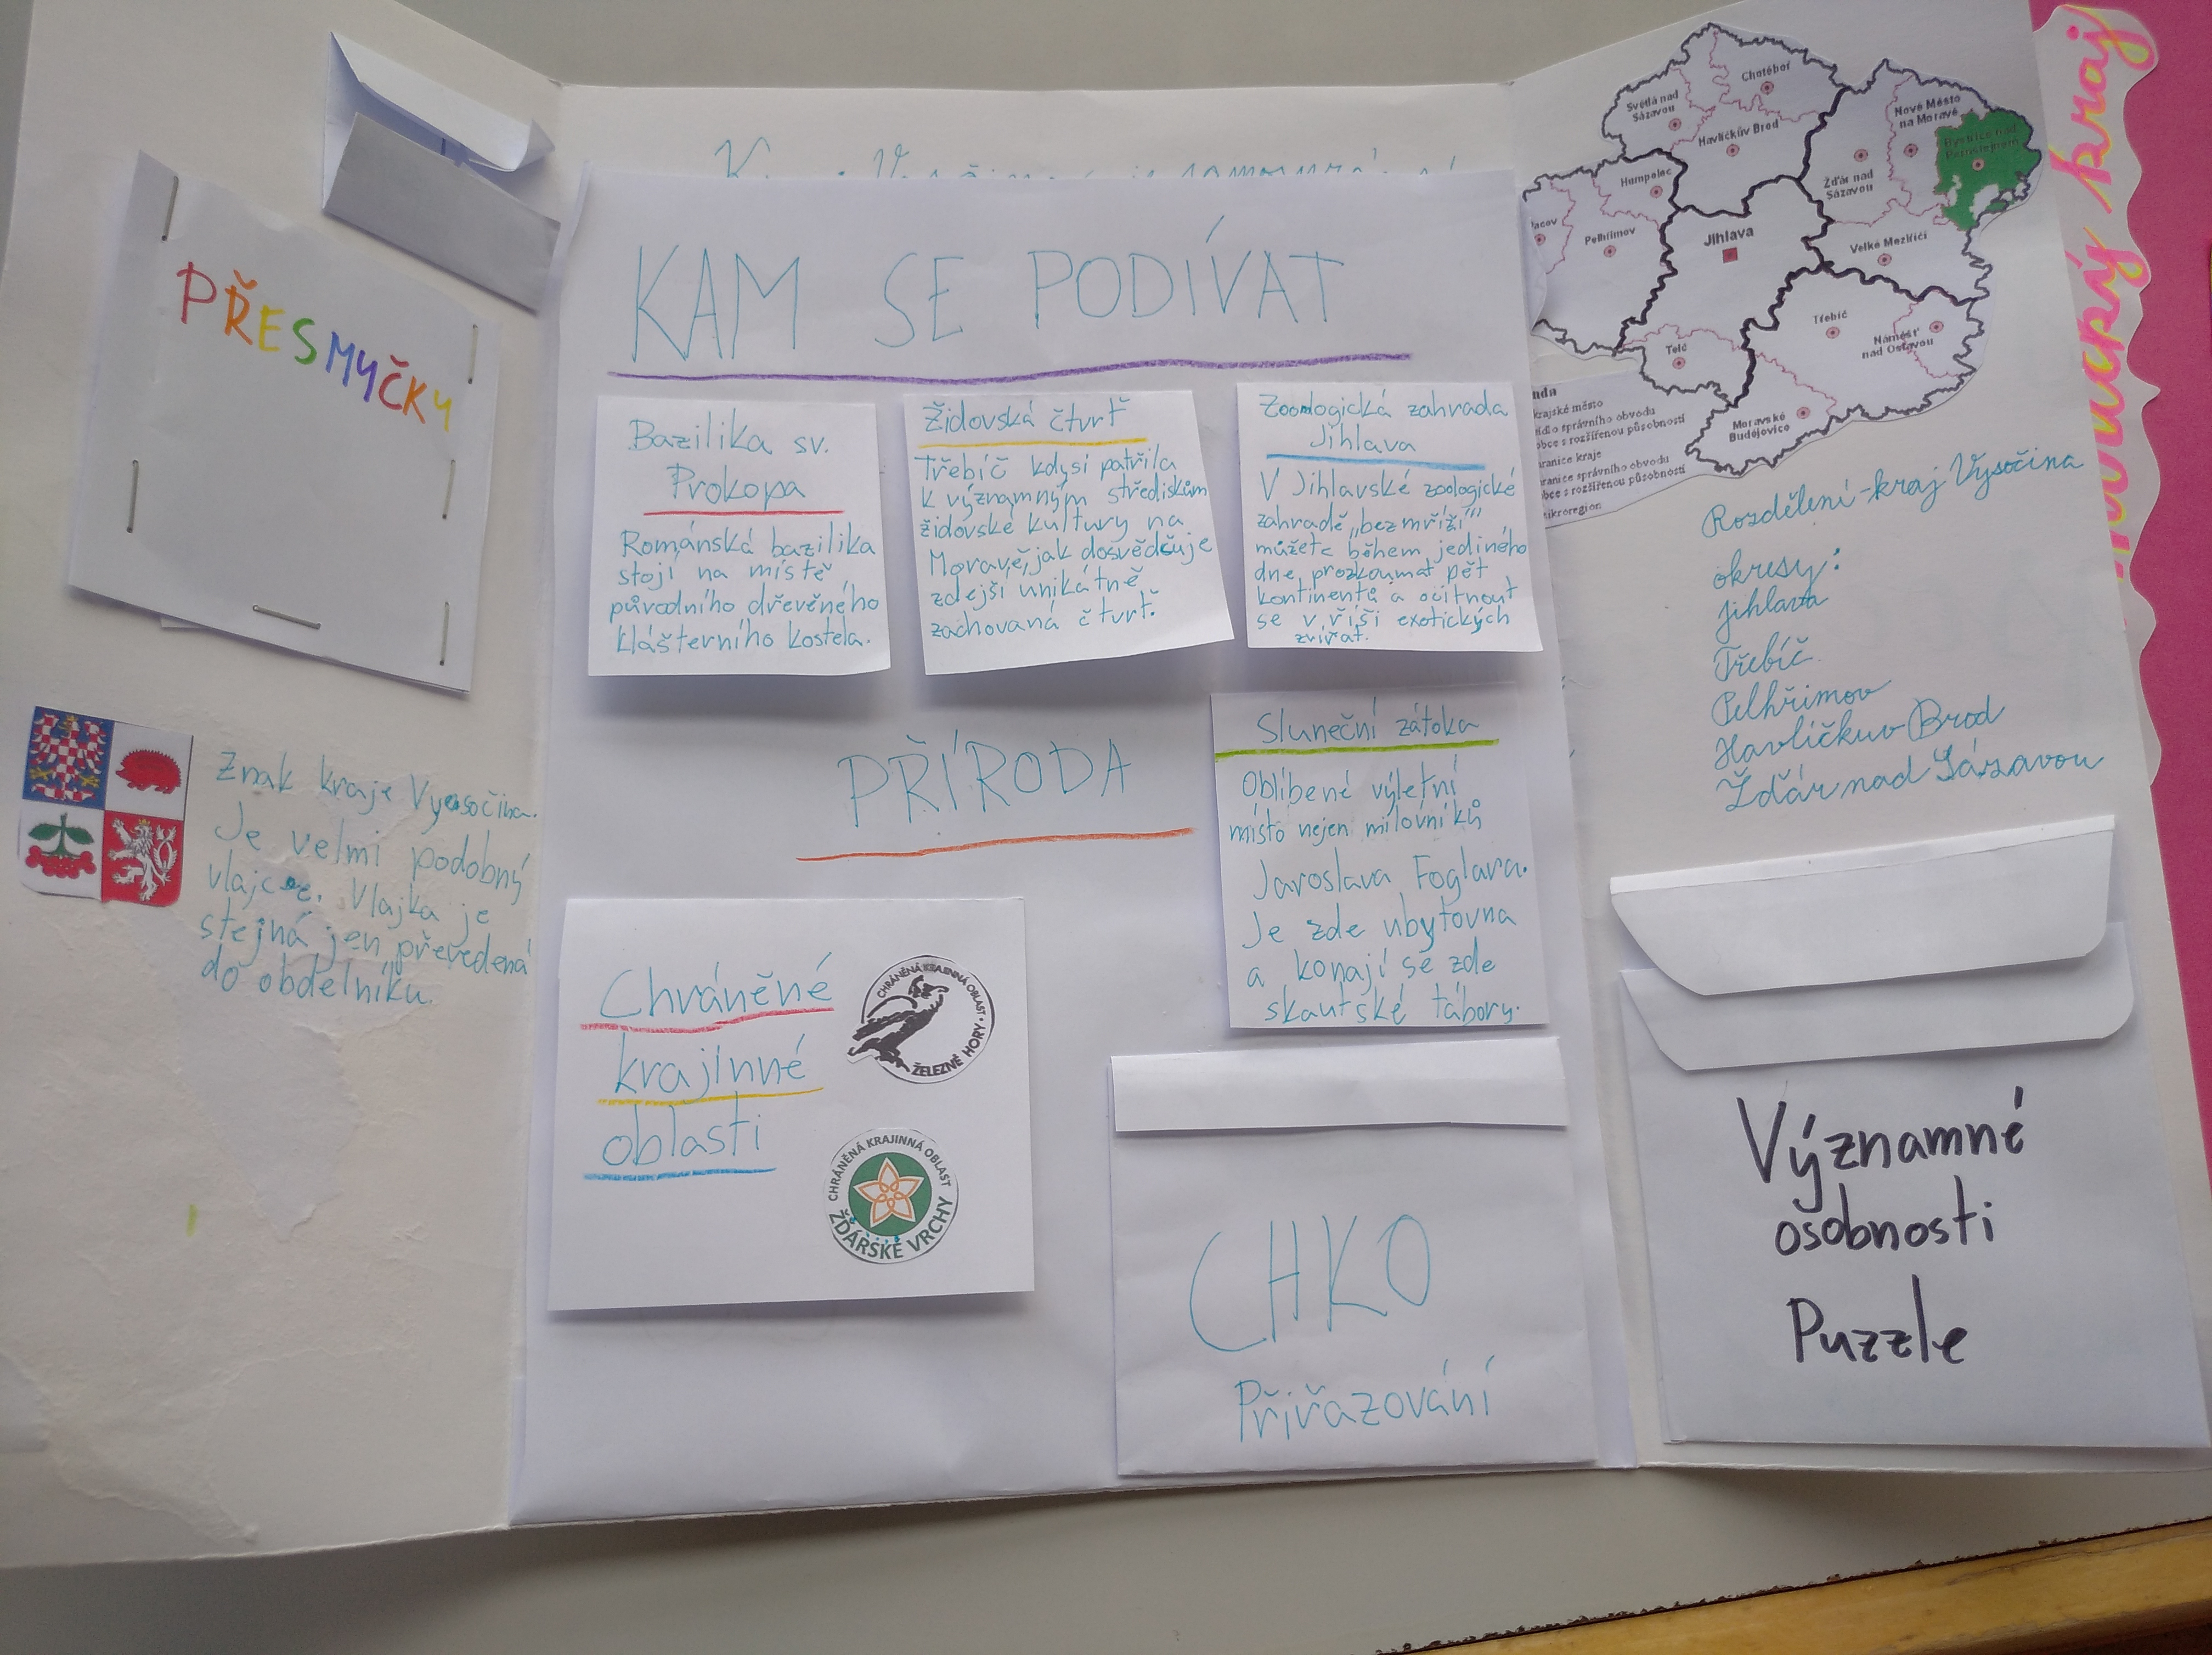 PŘESMYČKY
Znak kraje Vysočina.
Je velmi podobný
vlajce. Vlajka je
stejná jen převedená
do obdelníku.
KAM SE PODÍVAT
Bazilika sv.
Prokopa
Románská bazilika
stojí na místě
původního dřevěného
klášterního kostela.
Židovská čtvrť
Třebíč kdysi patřila
k významným střediskům
židovské kultury na
Moravě, jak dosvědčuje
zdejší unikátně
zachovaná čtvrť.
Zoologická zahrada
Jihlava
V Jihlavské zoologické
zahradě „bez mříží"
můžete během jediného
dne prozkoumat pět
kontinentů a ocitnout
se v říši exotických
zvířat.
PŘÍRODA
Sluneční zátoka
Oblíbené výletní
místo nejen milovníků
Jaroslava Foglara.
Je zde ubytovna
a konají se zde
skautské tábory.
Chráněné
krajinné
oblasti
CHRÁNĚNÁ KRAJINNÁ OBLAST
ŽELEZNÉ HORY
CHRÁNĚNÁ KRAJINNÁ OBLAST
ŽĎÁRSKÉ VRCHY
CHKO
Přiřazování
Chotěboř
Světlá nad
Sázavou
Havlíčkův Brod
Nové Město
na Moravě
Bystřice nad
Pernštejnem
Humpolec
Žďár nad
Sázavou
Pelhřimov
Jihlava
Velké Meziříčí
Třebíč
Náměšť
nad Oslavou
Telč
Moravské
Budějovice
krajské město
sídlo správního obvodu
obce s rozšířenou působností
hranice kraje
hranice správního obvodu
obce s rozšířenou působností
mikroregion
Rozdělení-kraj Vysočina
okresy:
Jihlava
Třebíč
Pelhřimov
Havlíčkuv Brod
Žďár nad Sázavou
Významné
osobnosti
Puzzle
kraj